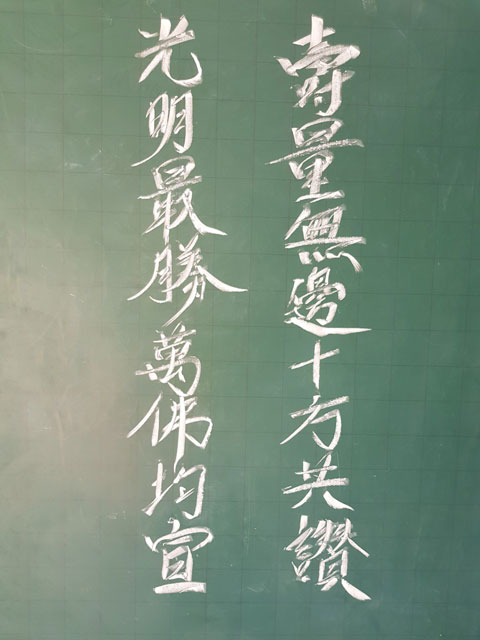 壽量無邊十方共讚
光明最勝萬佛均宣